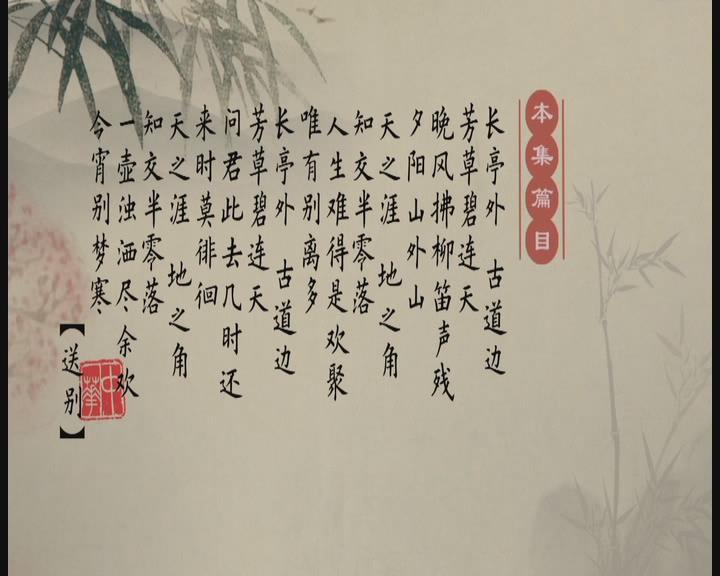 本集篇目
长亭外 古道边
芳草碧连天
晚风拂柳笛声残
夕阳山外山
天之涯 地之角
知交半零落
人生难得是欢聚
唯有别离多
长亭外 古道边
芳草碧连天
问君此去几时还
来时莫徘徊
天之涯 地之角
知交半零落
一壶浊洒尽余欢
今宵别梦寒
【送别】
中華